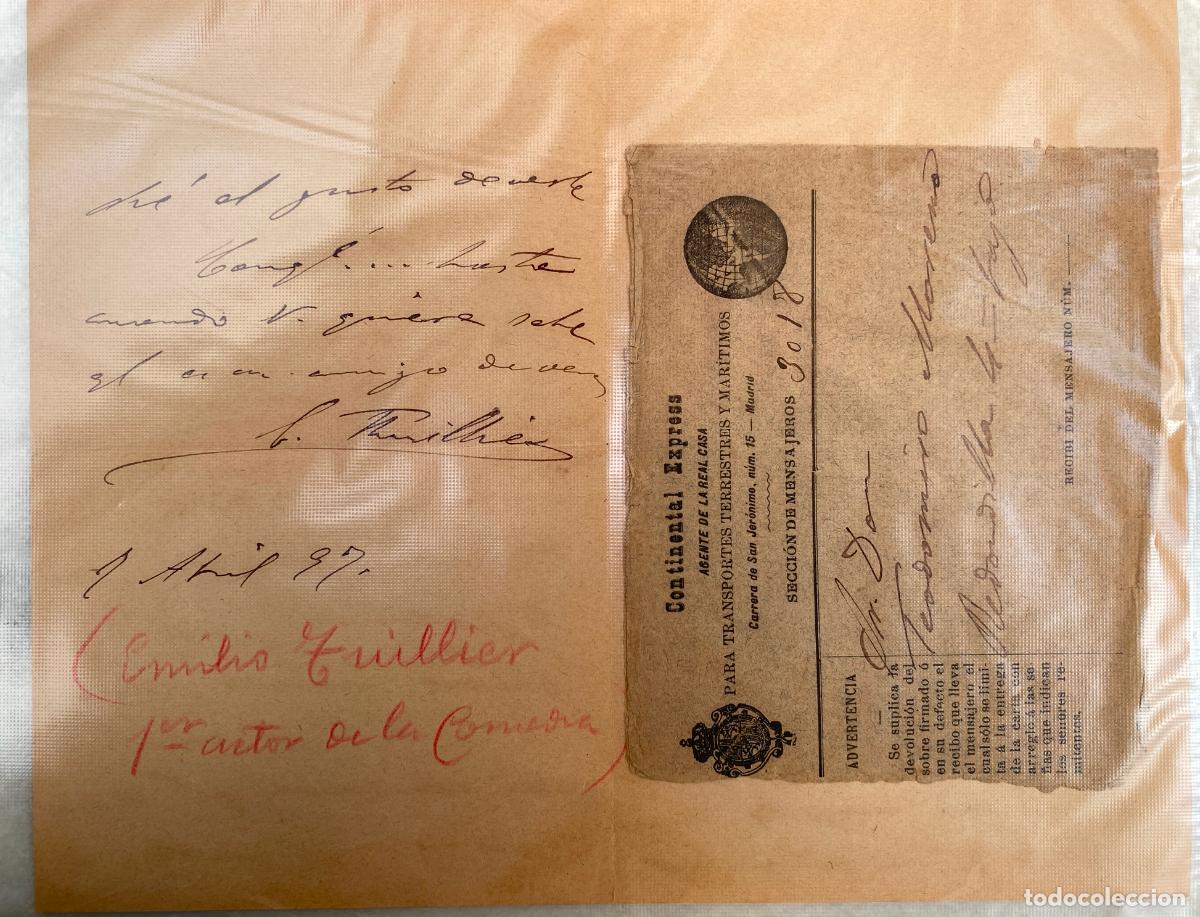 el gusto de verle
hasta
cuando V. quiera sabe
amigo de veras
E. Thuillier
1 Abril 97.
(Emilio Tuillier
1er actor de la Comedia)
Continental Express
AGENTE DE LA REAL CASA
PARA TRANSPORTES TERRESTRES Y MARÍTIMOS
Carrera de San Jerónimo, núm. 15 — Madrid
SECCIÓN DE MENSAJEROS 3018
ADVERTENCIA
Se suplica la
devolución del
sobre firmado ó
en su defecto el
recibo que lleva
el mensajero el
cual sólo se limi-
ta á la entrega
de la carta con
arreglo á las se-
ñas que indican
los señores re-
mitentes.
Sr. Don
Teodomiro Moreno
Redondilla 4
RECIBÍ DEL MENSAJERO NÚM.
todocoleccion